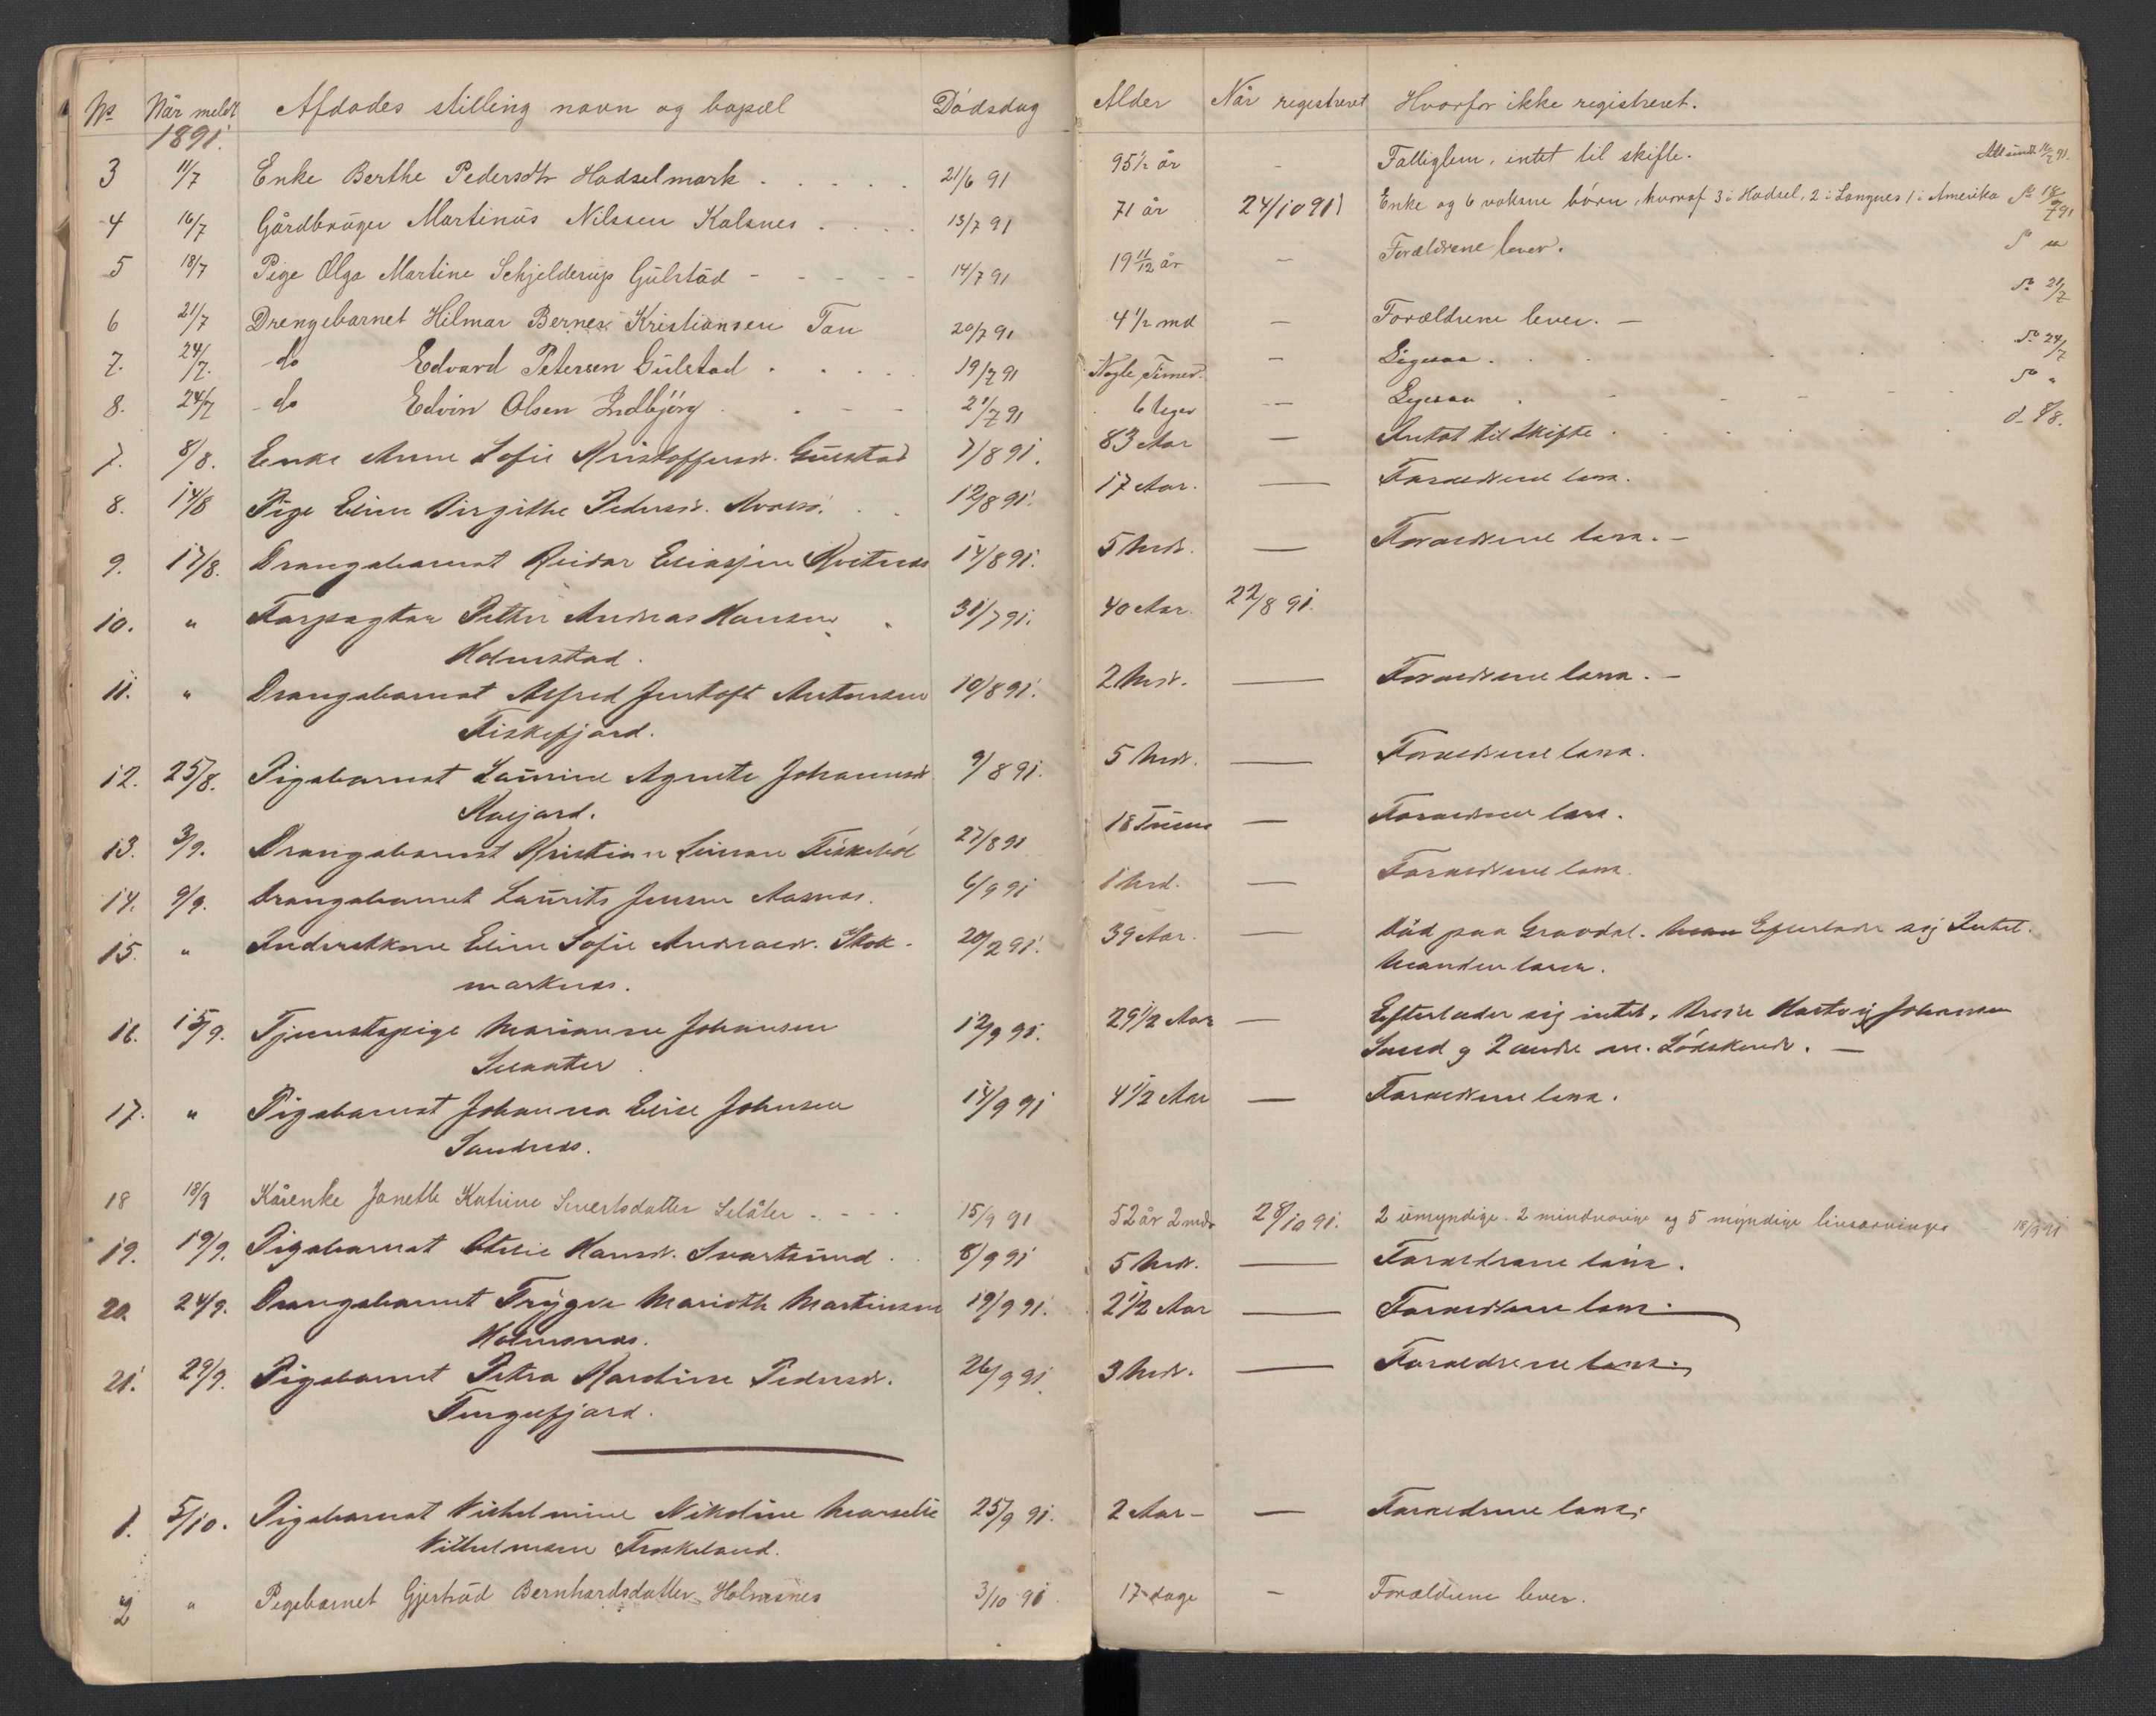 No Når meldt Afdødes stilling navn og bopæl Dödsdag Alder Når registreret Hvorfor ikke registreret.
1891.
3 11/7 Enke Berthe Pedersdtr Hadselmark . . . . . 21/6 91 95 1/2 år - Fattiglem, intet til skifte.
4 16/7 Gårdbrüger Martinüs Nilssen Kalsnes . . . . 13/7 91 71 år 24/10 91 Enke og 6 voksne börn, hvoraf 3 i Hadsel, 2 i Langnes 1 i Amerika
5 18/7 Pige Olga Martine Schjelderup Gülstad - - - - - 14/7 91 19 11/12 år - Forældrene lever.
6 21/7 Drengebarnet Hilmar Kristiansen 20/7 91 4 1/2 md - Forældrene lever. -
7. 24/7. do Edvard Petersen Gülstad . . . . 19/7 91 Nogle Timer. - Ligesaa .
8. 24/7 do Edvin Olsen Indbjörg . . - - 21/7 91 6 uger - Ligesaa .
7. 8/8. Enke Anne Sofie Kristoffersdr. Gülstad 7/8 91. 83 Aar - Intet til skifte .
8. 14/8 Pige Eline Birgitte Pedersdr. . . 12/8 91. 17 Aar. - Foraeldrene leva.
9. 17/8. Drengebarnet Reidar Eliassen Kvitnes 14/8 91. 5 Mdr. - Foraeldrene leva. -
10. " Forpagter Petter Andreas Hansen 31/7 91. 40 Aar. 22/8 91.
Holmstad.
11. " Drengebarnet Alfred Jentoft Antonsen 10/8 91. 2 Mdr. - Foraeldrene leva. -
Fiskefjord.
12. 25/8. Pigebarnet Laürine Agnete Johannesdr 9/8 91. 5 Mdr. - Foraeldrene leva.
13. 3/9. Drengebarnet Kristian Fiskeböl 27/8 91 18 Timer - Foraeldrene leva.
14. 9/9. Drengebarnet Laürits Jensen Aasnes. 6/9 91 1 Md. - Foraeldrene leva.
15. " Inderstkone Eline Sofie Andreasdr. Stok- 20/2 91. 39 Aar. - Död paa Gravdal. Efterlader sig Intet.
marknes. Manden lever.
16. 15/9. Tjenestepige Marianne Johansen 12/9 91. 29 1/2 Aar - Efterlader sig intet. Hartvig Johansen
Selaater Sand og 2 andre
17. " Pigebarnet Johanna Elise Johnsen 14/9 91 4 1/2 Aar - Foraeldrene leva.
Sandnes.
18 18/9 Kårenke Janette Katrine Sivertsdatter Selåter . - - - 15/9 91 52 år 2 mdr 28/10 91. 2 ümyndige. 2 mindreårige og 5 myndige livsarvinger 18/9 91
19. 19/9. Pigebarnet Otelie Hansdr. Svartsünd . . 8/9 91 5 Mdr. - Foraeldrene leva.
20 24/9. Drengebarnet Trygve Marioth Martinsen 19/9 91. 2 1/2 Aar - Foraeldrene leva.
Holmsnes.
21. 29/9. Pigebarnet Petra Karoline Pedersdr. 26/9 91. 3 Mdr. - Foraeldrene leva.
Tengelfjord.
1. 5/10. Pigebarnet Vilhelmine Nikoline Marselie 25/9 91. 2 Aar - - Foraeldrene leva.
Vilhelmsen Frøskeland.
2 " Pigebarnet Gjertrüd Bernhardsdatter Holmsnes 3/10 91 17 dage - Forældrene lever.